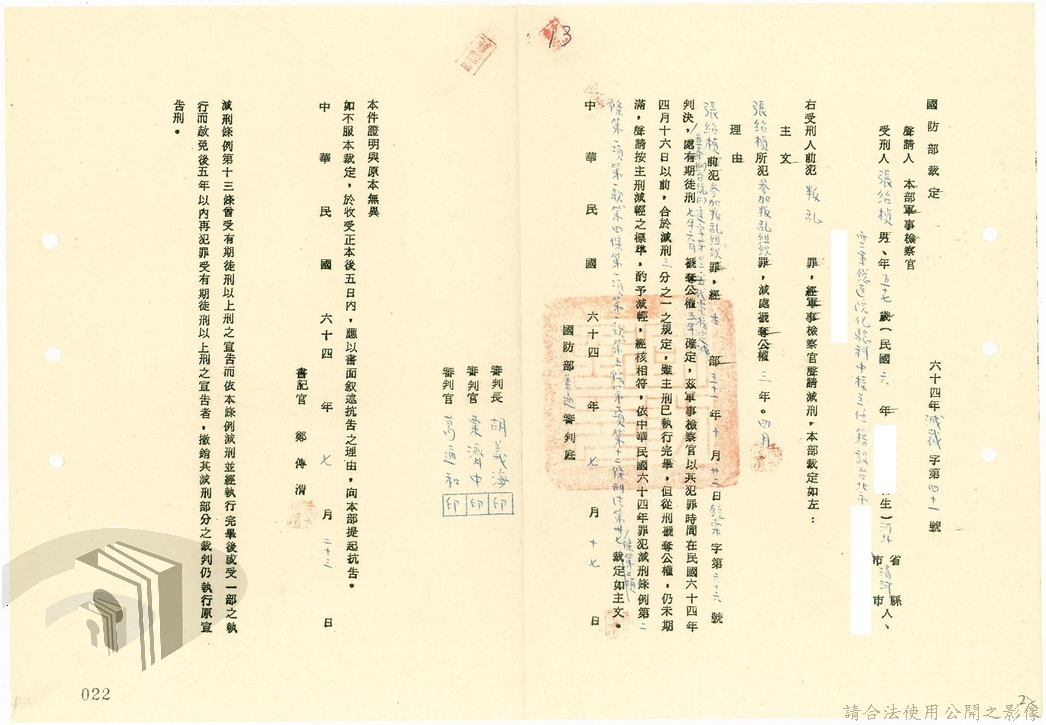 國防部裁定
六十四年減裁字第四十一號
聲請人 本部軍事檢察官
受刑人 張紹楨 男、年五十七歲(民國六年 生)河北省清河縣市人、
右受刑人前犯叛乱罪,經軍事檢察官聲請減刑,本部裁定如左:
主文
張紹楨所犯參加叛乱組織罪,減處褫奪公權三年。四月
理由
張紹楨前犯參加叛乱組織罪,經本部五十一年十月廿二日鏡業字第二六六號
判決,處有期徒刑七年六月褫奪公權五年確定,茲軍事檢察官以其犯罪時間在民國六十四年
四月十六日以前,合於減刑三分之一之規定,雖主刑已執行完畢,但從刑褫奪公權,仍未期
滿,聲請按主刑減輕之標準,酌予減輕,經核相符,依中華民國六十四年罪犯減刑條例第二
條第一項第二款第四條第一項第一款第五條第一項第十二條刑法第卅七條第二項裁定如主文。
中華民國六十四年七月十七日
國防部普通審判庭
審判長 胡義海 印
審判官 葉濟中 印
審判官 高通和 印
本件證明與原本無異
如不服本裁定,於收受正本後五日內,應以書面叙述抗告之理由,向本部提起抗告。
中華民國六十四年七月二十三日
書記官 鄭傳清
減刑條例第十三條曾受有期徒刑以上刑之宣告而依本條例減刑並經執行完畢後或受一部之執
行而赦免後五年以內再犯罪受有期徒刑以上刑之宣告者,撤銷其減刑部分之裁判仍執行原宣
告刑。
13
022
請合法使用公開之影像